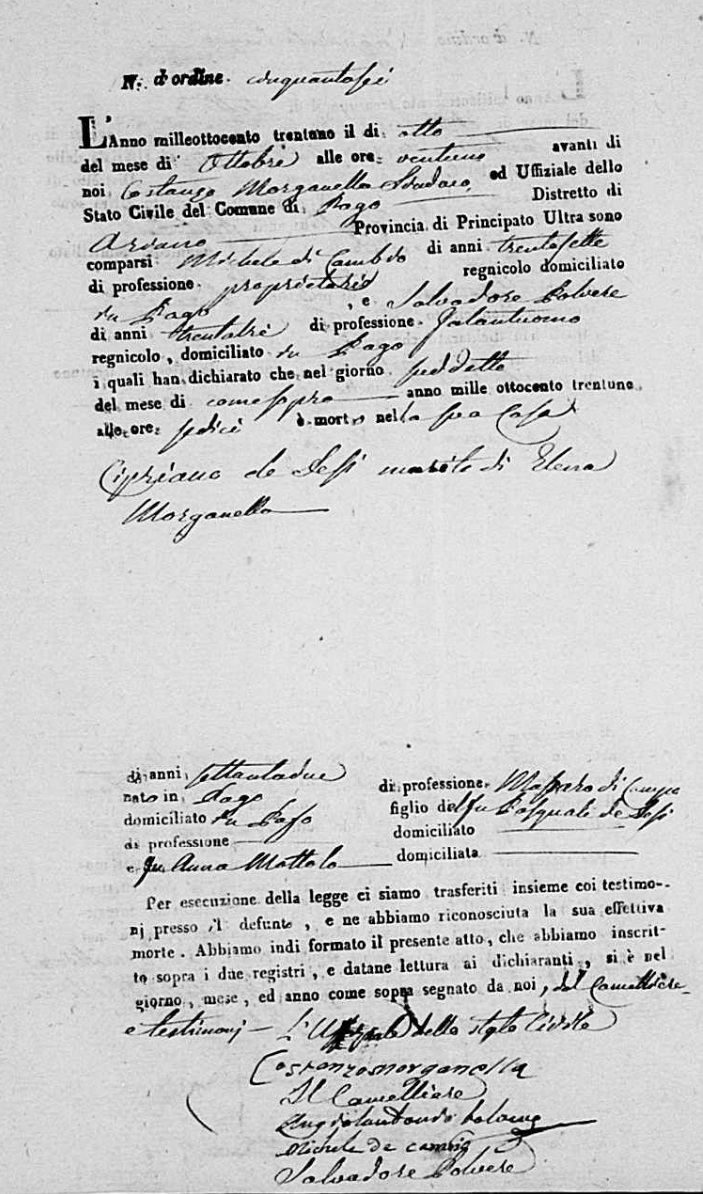 N. d'ordine cinquantasei
L'Anno milleottocento trentuno il di otto
del mese di Ottobre alle ore ventuno avanti di
noi Costanzo Morganella Sindaco, ed Uffiziale dello
Stato Civile del Comune di Pago Distretto di
Ariano Provincia di Principato Ultra sono
comparsi Michele di Cambio di anni trentasette
di professione proprietario regnicolo domiciliato
in Pago, e Salvadore Polvere
di anni trentatrè di professione Galantuomo
regnicolo, domiciliato in Pago
i quali han dichiarato che nel giorno suddetto
del mese di come sopra anno mille ottocento trentuno
alle ore sedici è morto nella sua Casa
Cipriano de Sessi marito di Elena
Morganella
di anni settantadue di professione Massaro di Campo
nato in Pago figlio del fu Pasquale de Sessi
domiciliato in Pago domiciliato
di professione
e fu Anna Mottola domiciliata
Per esecuzione della legge ci siamo trasferiti insieme coi testimo-
nj presso il defunto, e ne abbiamo riconosciuta la sua effettiva
morte. Abbiamo indi formato il presente atto, che abbiamo inscrit-
to sopra i due registri, e datane lettura ai dichiaranti, si è nel
giorno, mese, ed anno come sopra segnato da noi, dal Cancelliere
e testimonj L'Uffiziale dello stato Civile
Costanzo Morganella
Il Cancelliere
Michele de Cambio
Salvadore Polvere